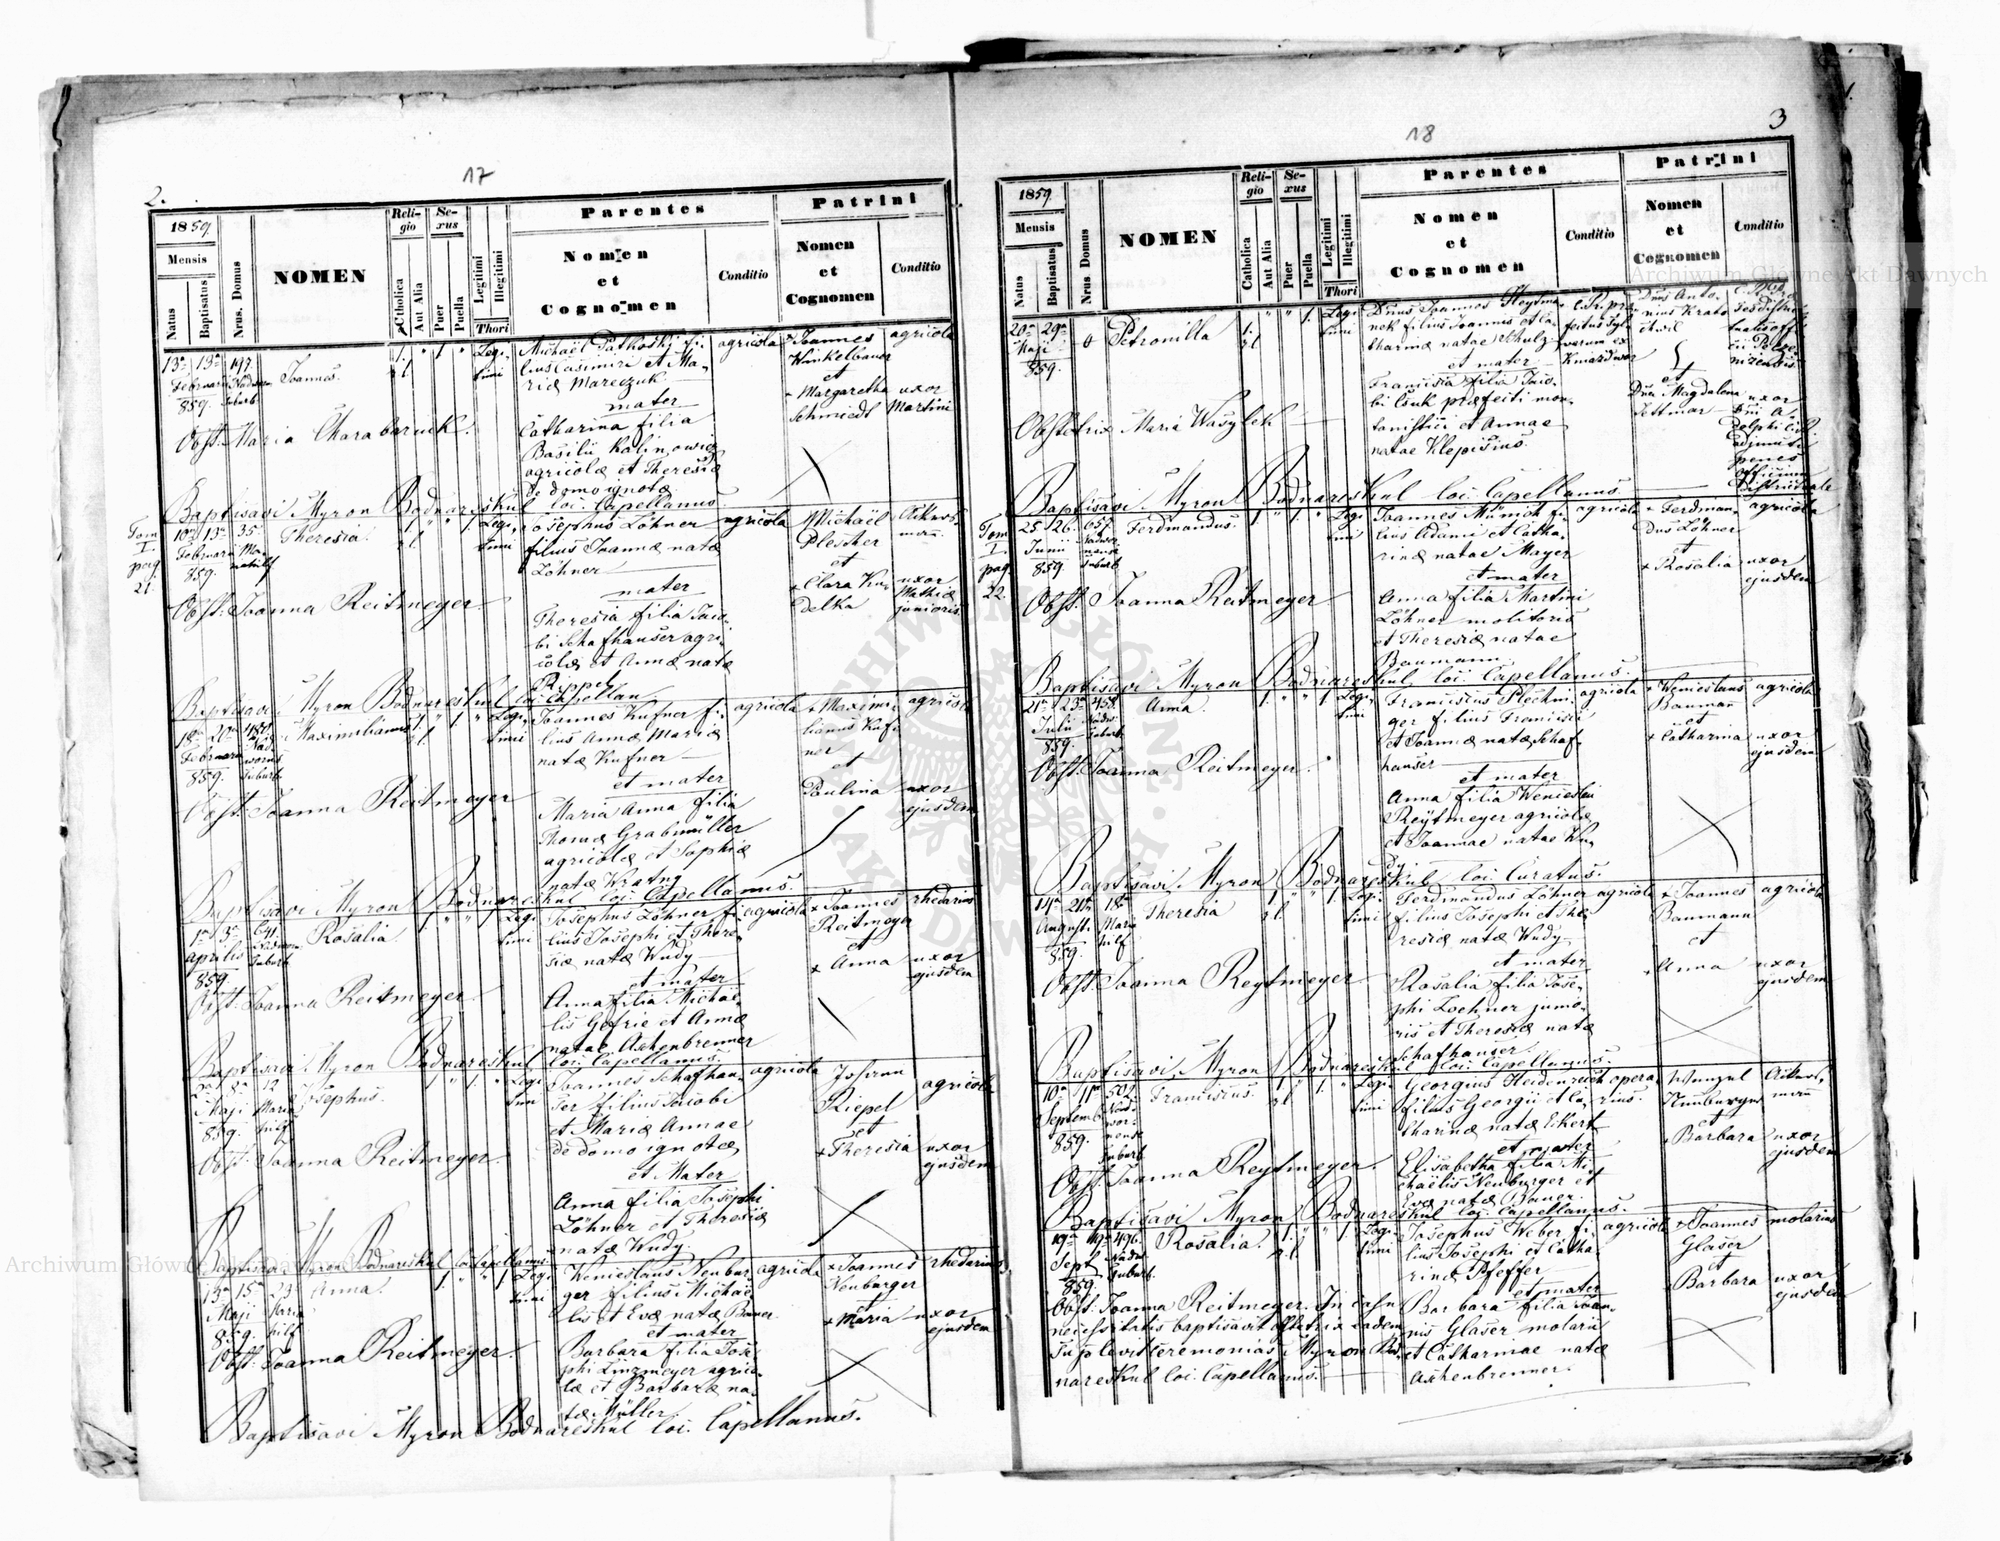 2.
17
1859.
Mensis
Natus
Baptisatus
Nrus. Domus
NOMEN
Religio
Catholica
Aut Alia
Sexus
Puer
Puella
Legitimi
Illegitimi
Thori
Parentes
Nomen
et
Cognomen
Conditio
Patrini
Nomen
et
Cognomen
Conditio
13a 13a 197
Februarii
859.
Joannes.
Legi-
timi
Michaël Patkoskÿ fi-
lius Casimiri et Ma-
riæ Mareczuk
mater
Catharina filia
Basilii Kalinowicz
agricolæ et Theresiæ
de domo ignotæ.
agricola
Joannes
Winkelbauer
et
Margaretha
Schmiedl
agricola
uxor
Martini
Obst. Maria Charabaruck.
Baptisavi Myron Bodnareskul loc. Capellanus.
Tom
I.
pag.
21.
10a 13a 35.
Februarii
859.
Theresia.
Legi-
timi
Josephus Löhner
filius Joannæ natæ
Löhner
mater
Theresia filia Jaco-
bi Schafhauser agri-
colæ et Annæ natæ
Rippel
agricola
Michaël
Plescher
et
Clara Ku-
delka
uxor
Mathiæ
junioris
Obst. Joanna Reitmeyer.
Baptisavi Myron Bodnareskul loci Capellan.
18a 20a
Februarii
859.
Maximilianus
Legi-
timi
Joannes Kufner fi-
lius Annæ Mariæ
natæ Kufner
et mater
Maria Anna filia
Thomæ Grabmüller
agricolæ et Sophiæ
natæ Wratny
agricola
Maximi-
lianus Kuf-
ner
et
Paulina
agricola
uxor
ejusdem
Obst. Joanna Reitmeyer
Baptisavi Myron Bodnareskul loc. Capellanus.
1a 3a
Aprilis
859
Rosalia
Legi-
timi
Josephus Löhner fi-
lius Josephi et There-
siæ natæ Wudy
et mater
Anna filia Michaë-
lis Gofrie et Annæ
natae Aschenbrenner
agricola
Joannes
Reitmeyer
et
Anna
rhedarius
uxor
ejusdem
Obst. Joanna Reitmeyer.
Baptisavi Myron Bodnareskul loci Capellanus.
8a 12
Maji
859.
Josephus.
Legi-
timi
Joannes Schafhau-
ser filius Jacobi
et Mariæ Annae
de domo ignotæ
et Mater
Anna filia Josephi
Löhner et Theresiæ
natæ Wudy.
agricola
Johann
Riepel
et
Theresia
agricola
uxor
ejusdem
Obst. Joanna Reitmeyer.
Baptisavi Myron Bodnareskul loci Capellanus.
13a 15a 23a
Maji
859.
Anna.
Legi-
timi
Wenceslaus Neubur-
ger filius Michaë-
lis et Evæ natæ Bauer
et mater
Barbara filia Jose-
phi Linzmeyer agrico-
læ et Barbaræ na-
tæ Müller.
agricola
Joannes
Neuburger
et
Maria
rhedarius
uxor
ejusdem
Obst. Joanna Reitmeyer.
Baptisavi Myron Bodnareskul loci Capellanus.
3
18
1859.
Mensis
Natus
Baptisatus
Nrus Domus
NOMEN
Religio
Catholica
Aut Alia
Sexus
Puer
Puella
Legitimi
Illegitimi
Thori
Parentes
Nomen
et
Cognomen
Conditio
Patrini
Nomen
et
Cognomen
Conditio
20a 29a
Maji
859.
Petronilla
Legi-
timi
nek filius Joannis et Ca-
tharinæ natae Schulz
et mater
Francisca filia Jaco-
bi Csuk præfecti mon-
tanistici et Annae
natae Klepisius.
Dnus Anto-
nius Krato-
chwil
et
Dna Magdalena
Dittmar
uxor
Obstetrix Maria Wasylek
Baptisavi Myron Bodnareskul loci Capellanus.
Tom
I.
pag.
22.
25. 26. 657.
Junii
859
Ferdinandus.
Legi-
timi
Joannes Münich fi-
lius Adami et Catha-
rinæ natae Mayer
et mater
Anna filia Martini
Löhner molitoris
et Theresiæ natae
Baumann.
agricola
Ferdinan-
dus Löhner
et
Rosalia
agricola
uxor
ejusdem
Obst. Joanna Reitmeyer
Baptisavi Myron Bodnareskul loci Capellanus.
21a 23a
Julii
859.
Anna.
Legi-
timi
Franciscus Plechin-
ger filius Francisci
et Joannæ natæ Schaf-
hauser
et mater
Anna filia Wenceslai
Reÿtmeyer agricolæ
et Joannae natae Wu-
dy.
agricola
Wenceslaus
Bauman
et
Catharina
agricola
uxor
ejusdem
Obst. Joanna Reitmeyer.
Baptisavi Myron Bodnareskul loci Curatus.
14a 21a 18a
Augusti
859.
Maria
hilf
Theresia
Legi-
timi
Ferdinandus Löhner
filius Josephi et The-
resiæ natæ Wudy
et mater
Rosalia filia Jose-
phi Loehner junio-
ris et Theresiæ natæ
Schafhauser.
agricola
Joannes
Baumann
et
Anna
agricola
uxor
ejusdem
Obst. Joanna Reytmeyer
Baptisavi Myron Bodnareskul loci Capellanus.
10a 11a 502.
Septemb.
859.
Franciscus.
Legi-
timi
Georgius Heidenreich
filius Georgii et Ca-
tharinæ natæ Eckert
et mater
Elisabetha filia Mi-
chaëlis Neuburger et
Evæ natæ Bauer.
opera-
rius.
Wenzel
Neuburger
et
Barbara
uxor
ejusdem
Obst. Joanna Reytmeyer.
Baptisavi Myron Bodnareskul loci Capellanus.
19a 19a 496.
Sept.
859.
Rosalia.
Legi-
timi
Josephus Weber fi-
lius Josephi et Catha-
rinæ Pfeffer
et mater
Barbara filia Joan-
nis Glaser molarii
et Catharinae natæ
Aschenbrenner.
agricola
Joannes
Glaser
et
Barbara
molarius
uxor
ejusdem
Obst. Joanna Reitmeyer. In casu
necessitatis baptisavit obstetrix eadem
Supplevit Ceremonias Myron Bod-
nareskul loci Capellanus.
Archiwum Główne Akt Dawnych
Archiwum Główne Akt Dawnych
ARCHIWUM GŁÓWNE AKT DAWNYCH